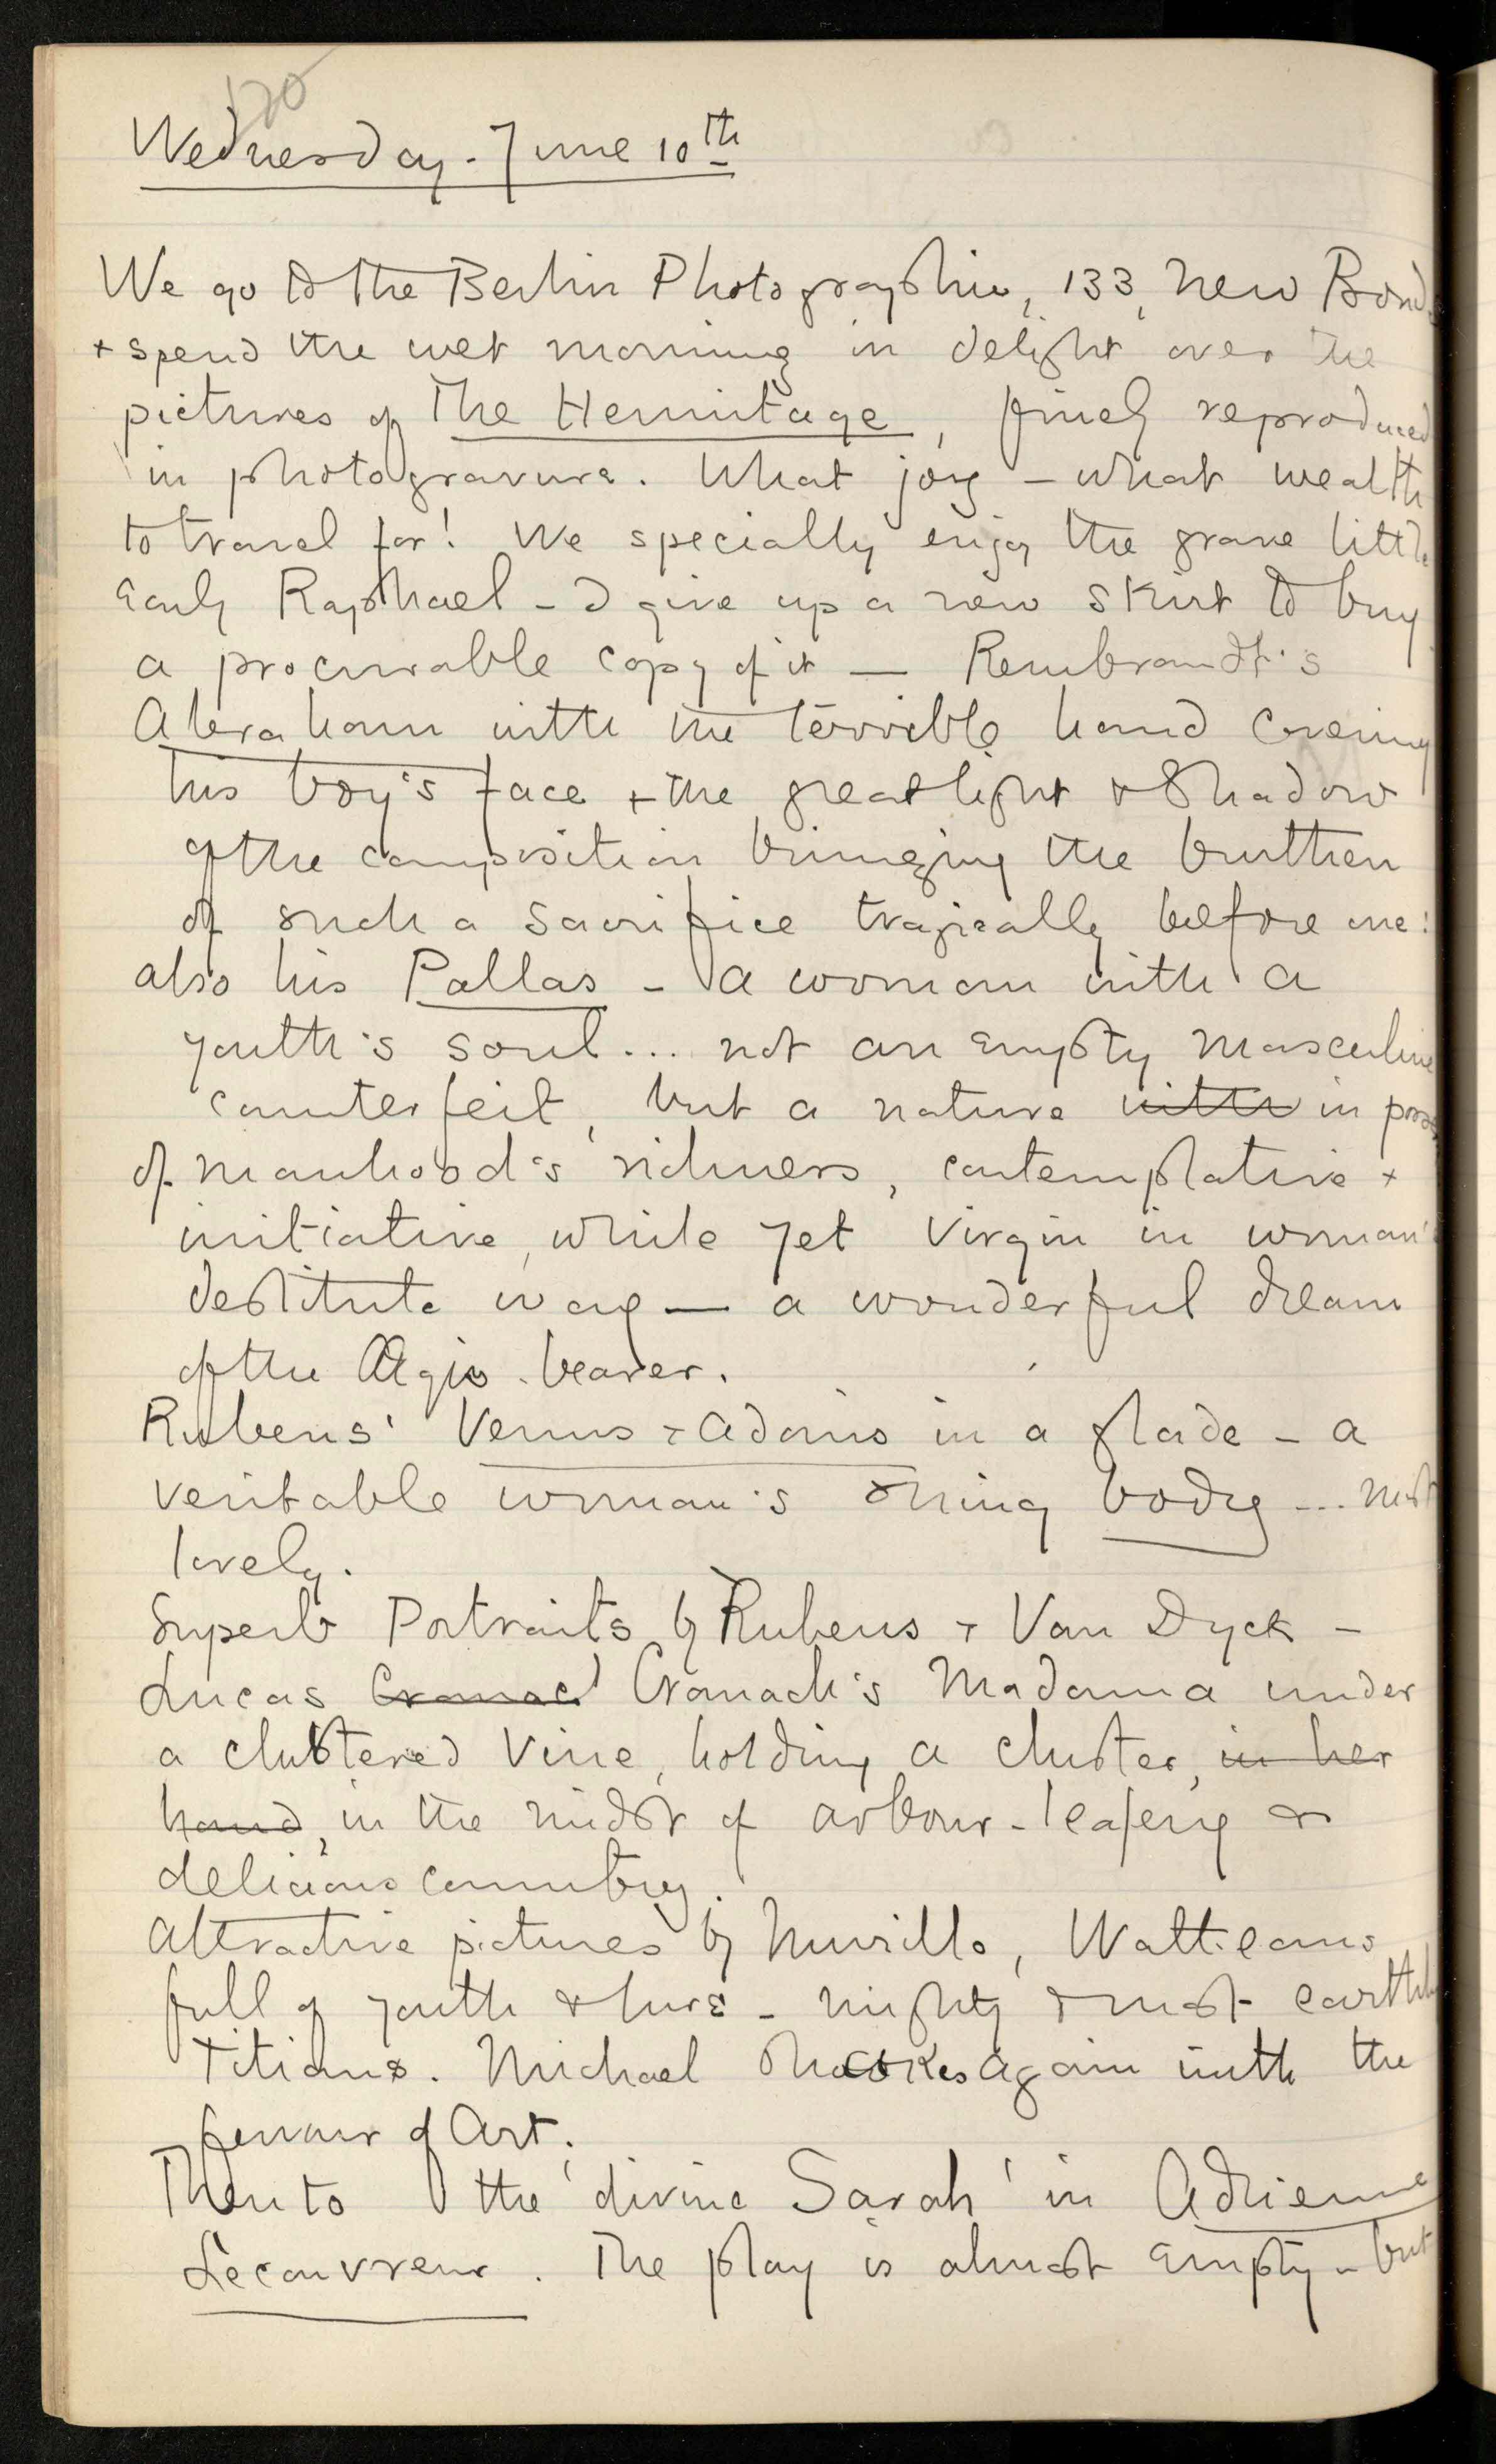 120
Wednesday. June 10th
We go to the Berlin Photographic, 133, New Bond
+ spend the wet morning in delight over the
pictures of The Hermitage, finely reproduced
in photogravure. What joy – what wealth
to travel for! We specially enjoy the grave little
early Raphael – I give up a new skirt to buy
a procurable copy of it — Rembrandt's
Abraham with the terrible hand covering
his boy's face + the great light & shadow
of the composition bringing the burthen
of such a sacrifice tragically before one:
also his Pallas – a woman with a
youth's soul... not an empty masculine
counterfeit, but a nature with in
of manhood's richness, contemplative +
initiative, while yet virgin in woman's
destitute way — a wonderful dream
of the Ægis-bearer.
Rubens' Venus + Adonis in a glade – a
veritable woman's body ... most
lovely.
Superb Portraits by Rubens + Van Dyck –
Lucas Cranac Cranach's Madonna under
a clustered vine, holding a cluster, in her
hand, in the midst of arbour-leafery &
delicious country.
Attractive pictures by Murillo, Watteaus
full of youth & - mighty & most earthly
Titians. Michael again with the
fervour of Art.
Then to the 'divine Sarah' in Adrienne
Lecouvreur. The play is almost empty – but